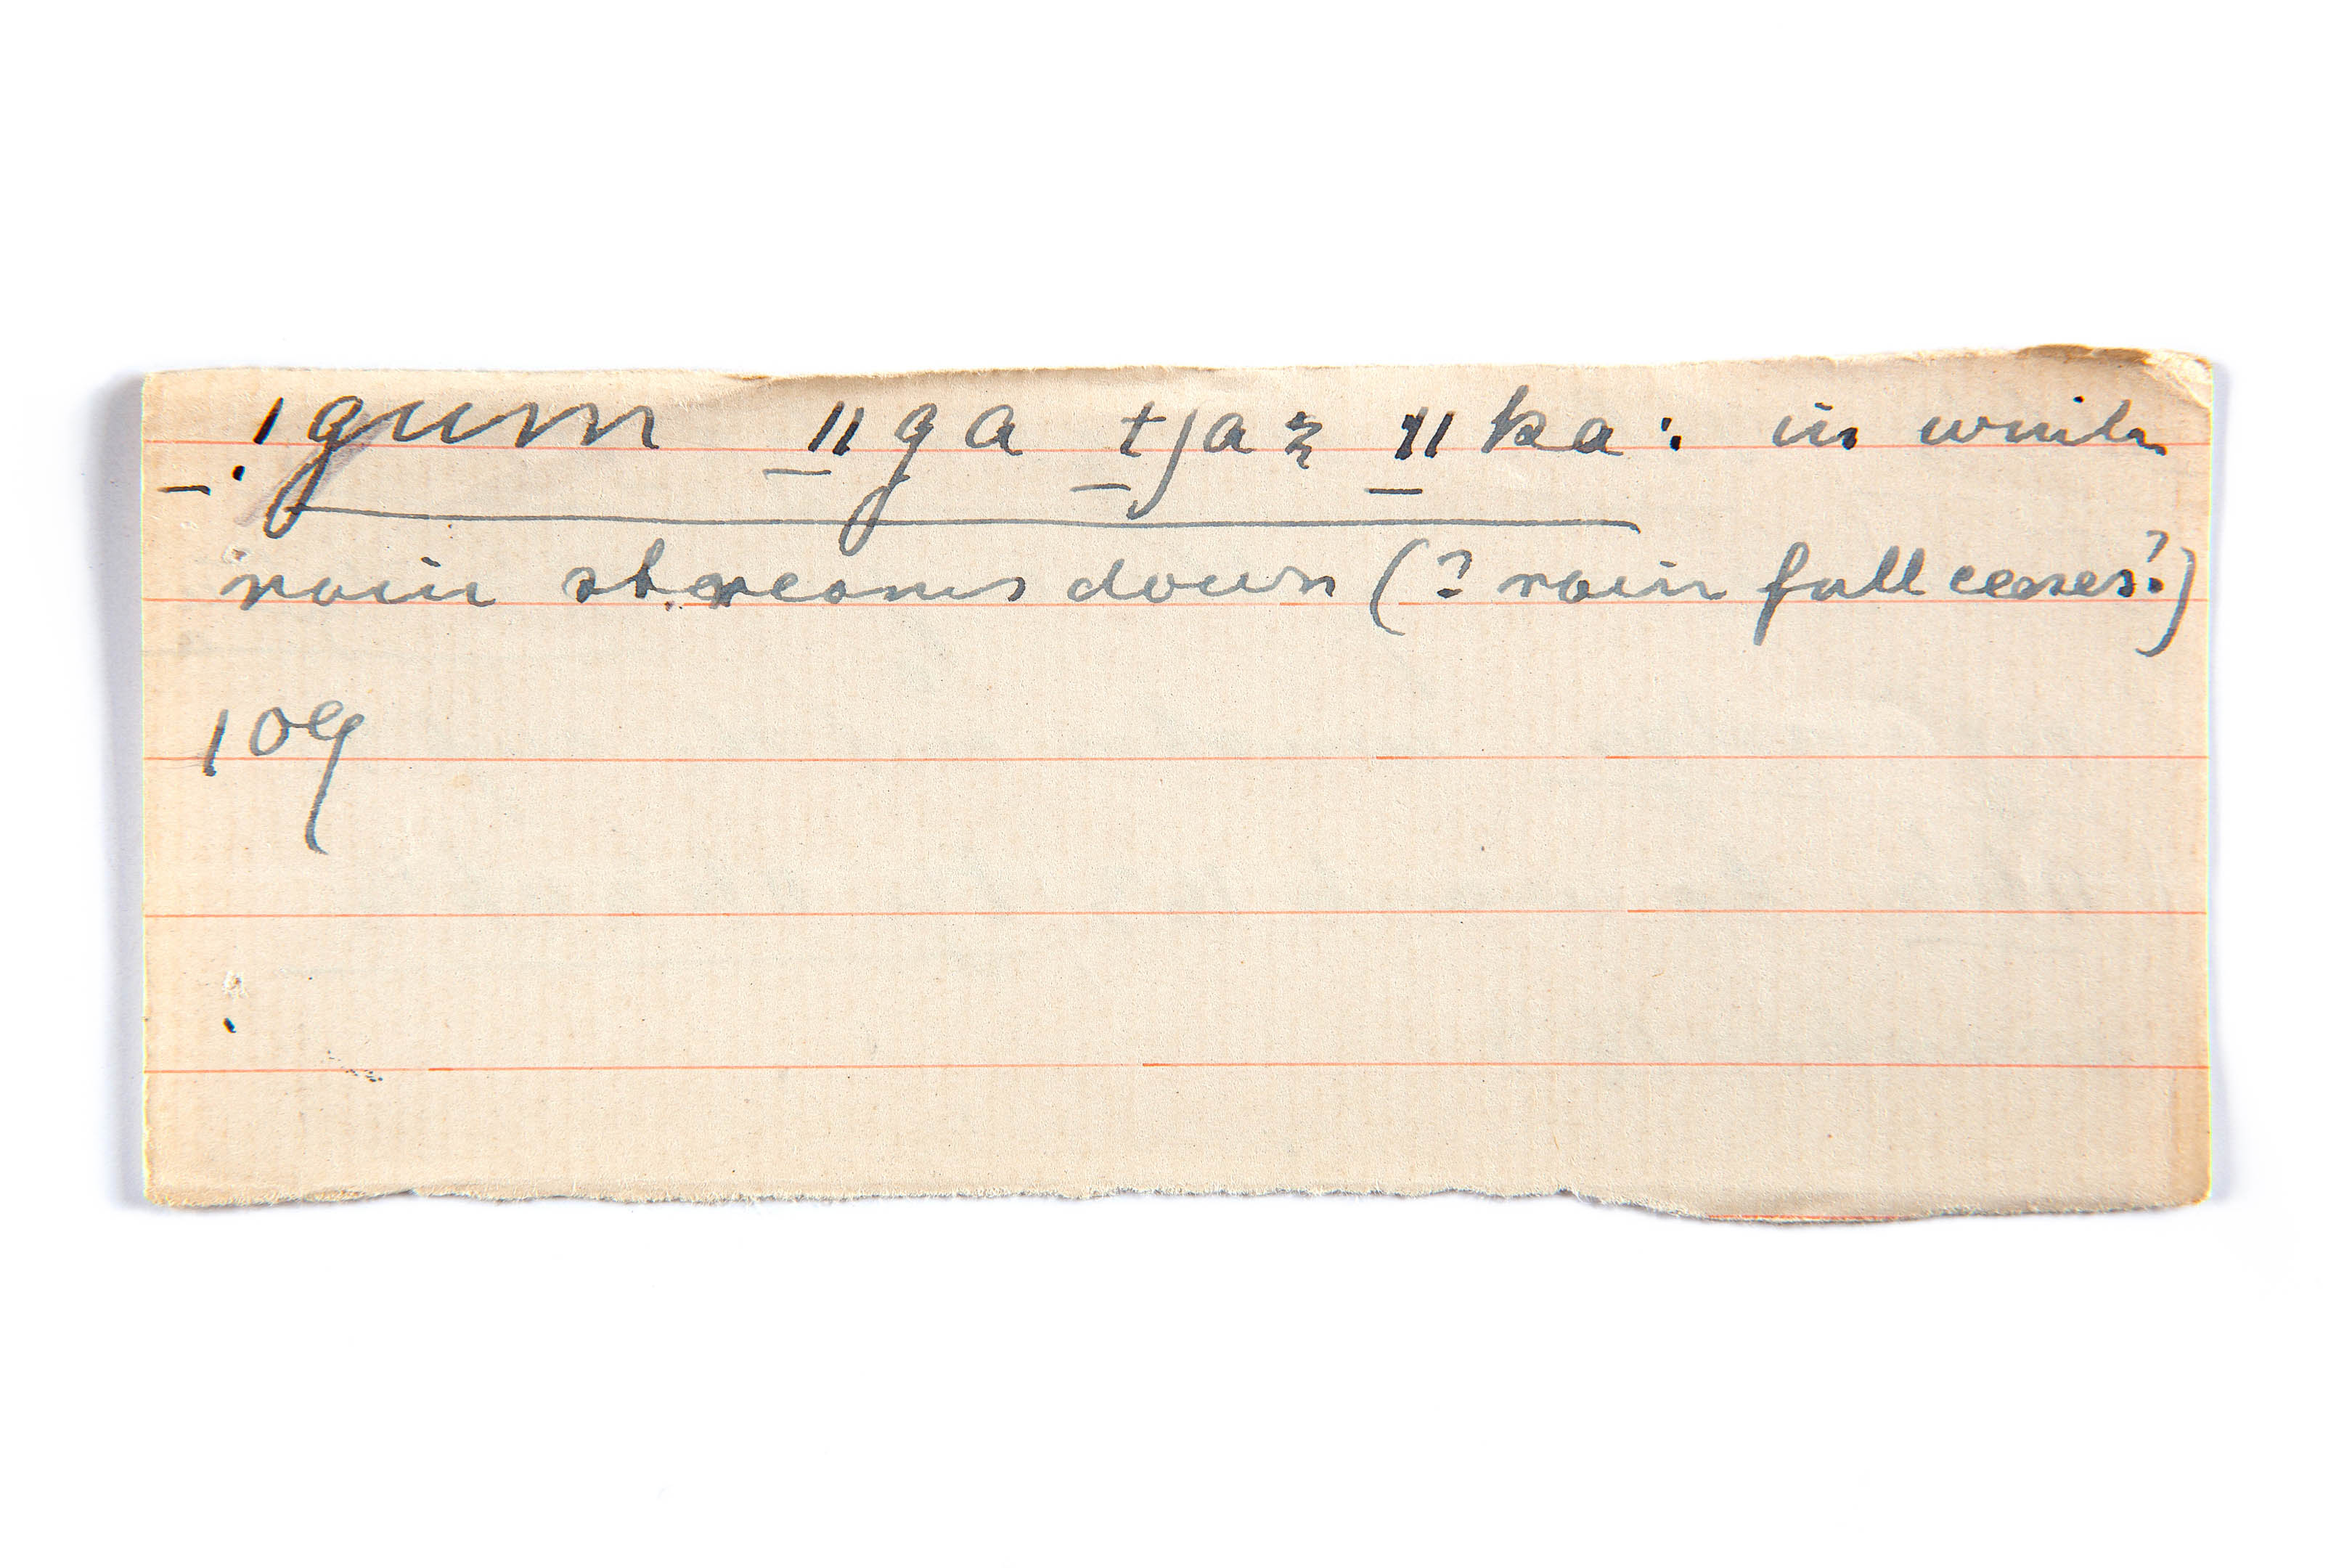 _!gum _ǁga _tʃaꜫ _ǁka: in winter
rain streams down (? rain fall ceases?)
109